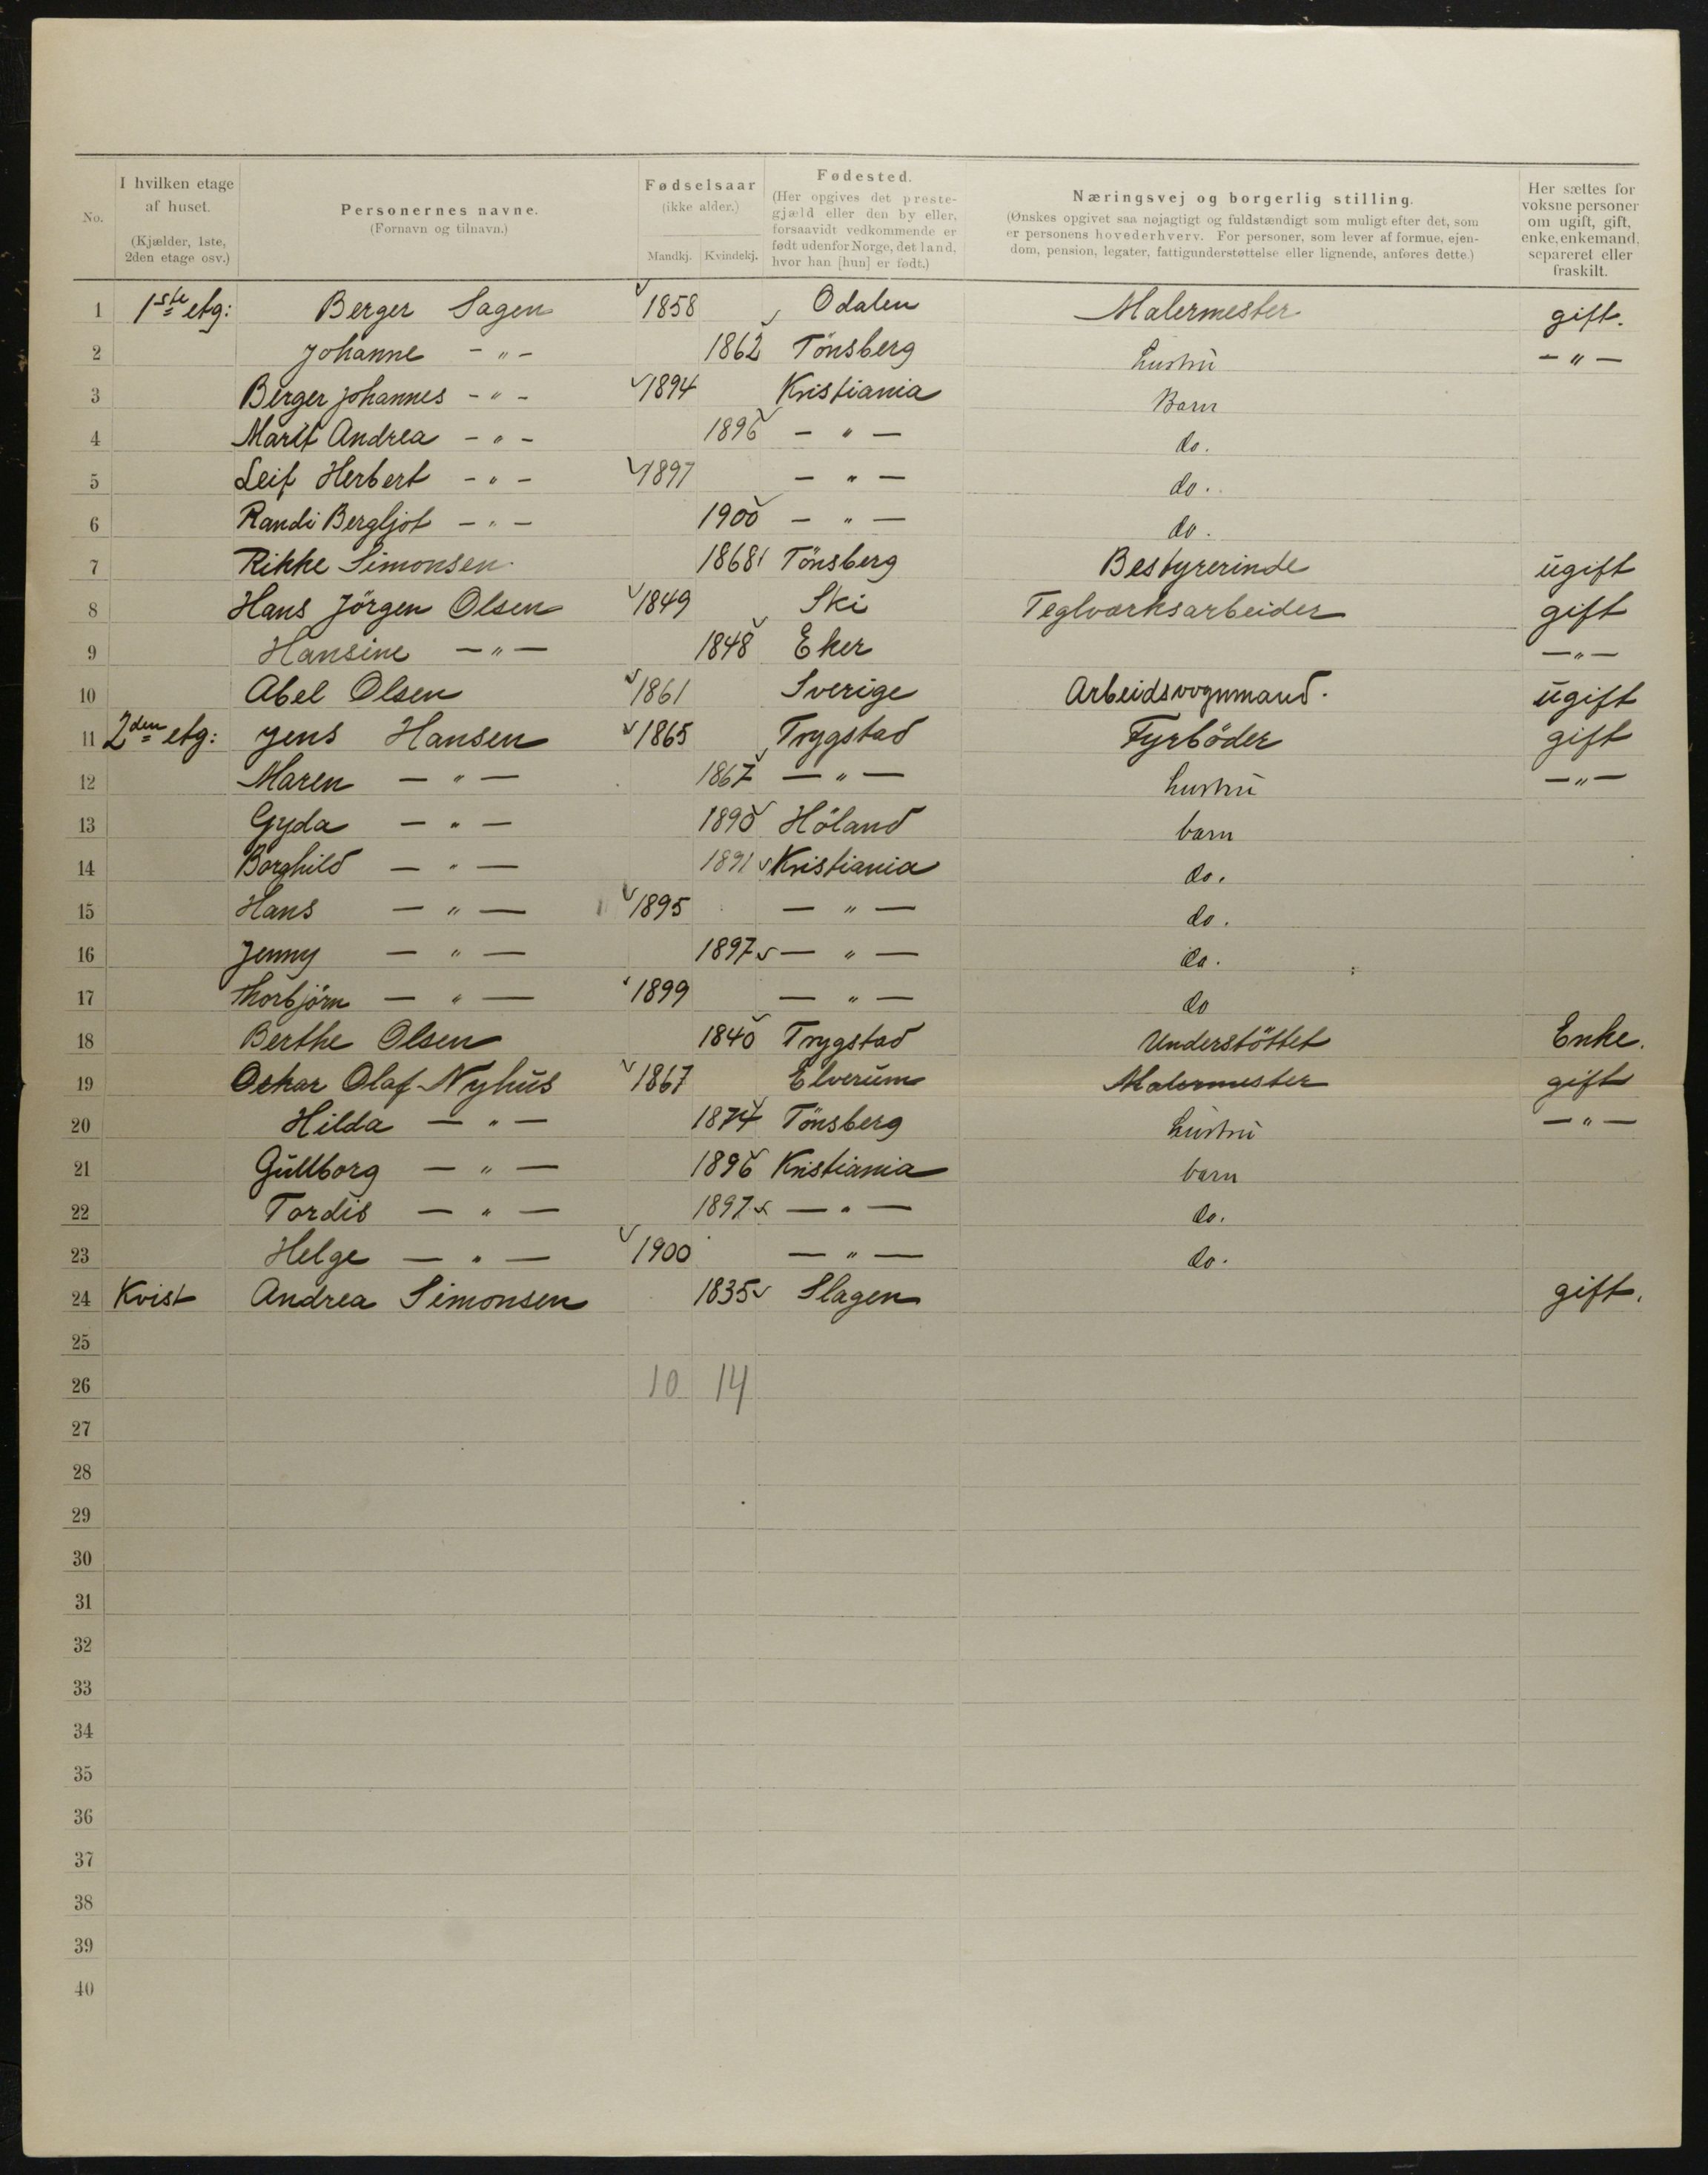 No.
I hvilken etage af huset.
(Kjælder, 1ste, 2den etage osv.)
Personernes navne.
(Fornavn og tilnavn.)
Fødselsaar
(ikke alder.)
Mandkj. Kvindekj.
Fødested.
(Her opgives det prestegjæld eller den by eller, forsaavidt vedkommende er født udenfor Norge, det land, hvor han [hun] er født.)
Næringsvej og borgerlig stilling.
(Ønskes opgivet saa nøjagtigt og fuldstændigt som muligt efter det, som er personens hovederhverv. For personer, som lever af formue, ejendom, pension, legater, fattigunderstøttelse eller lignende, anføres dette.)
Her sættes for voksne personer om ugift, gift, enke, enkemand, separeret eller fraskilt.
1 1ste etg: Berger Sagen 1858 Odalen Malermester gift.
2 Johanne - " - 1862 Tönsberg hustru - " -
3 Berger Johannes - " - 1894 Kristiania Barn
4 Marit Andrea - " - 1896 - " - do.
5 Leif Herbert - " - 1897 - " - do.
6 Randi Bergljot - " - 1900 - " - do.
7 Rikke Simonsen 1868 Tönsberg Bestyrerinde ugift
8 Hans Jörgen Olsen 1849 Ski Teglværksarbeider gift
9 Hansine - " - 1848 Eker - " -
10 Abel Olsen 1861 Sverige Arbeidsvognmand. ugift
11 2den etg: Jens Hansen 1865 Trygstad Fyrböder gift
12 Maren - " - 1867 - " - hustru - " -
13 Gyda - " - 1890 Höland barn
14 Borghild - " - 1891 Kristiania do.
15 Hans - " - 1895 - " - do.
16 Jenny - " - 1897 - " - do.
17 Thorbjörn - " - 1899 - " - do
18 Berthe Olsen 1840 Trygstad Understöttet Enke.
19 Oskar Olaf Nyhus 1867 Elverum Malermester gift
20 Hilda - " - 1874 Tönsberg hustru - " -
21 Gullborg - " - 1896 Kristiania barn
22 Tordis - " - 1897 - " - do.
23 Helge - " - 1900 - " - do.
24 Kvist Andrea Simonsen 1835 Slagen gift.
25
26 10 14
27
28
29
30
31
32
33
34
35
36
37
38
39
40